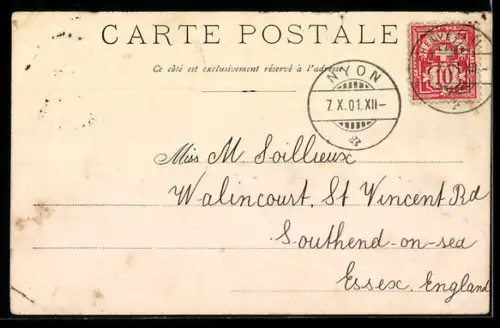 CARTE POSTALE
Ce côté est exclusivement réservé à l'adresse
HELVETIA
10
NYON
7.X.01.XII-
Miss M. Soillieux
Walincourt, St Vincent Rd
Southend-on-sea
Essex. England